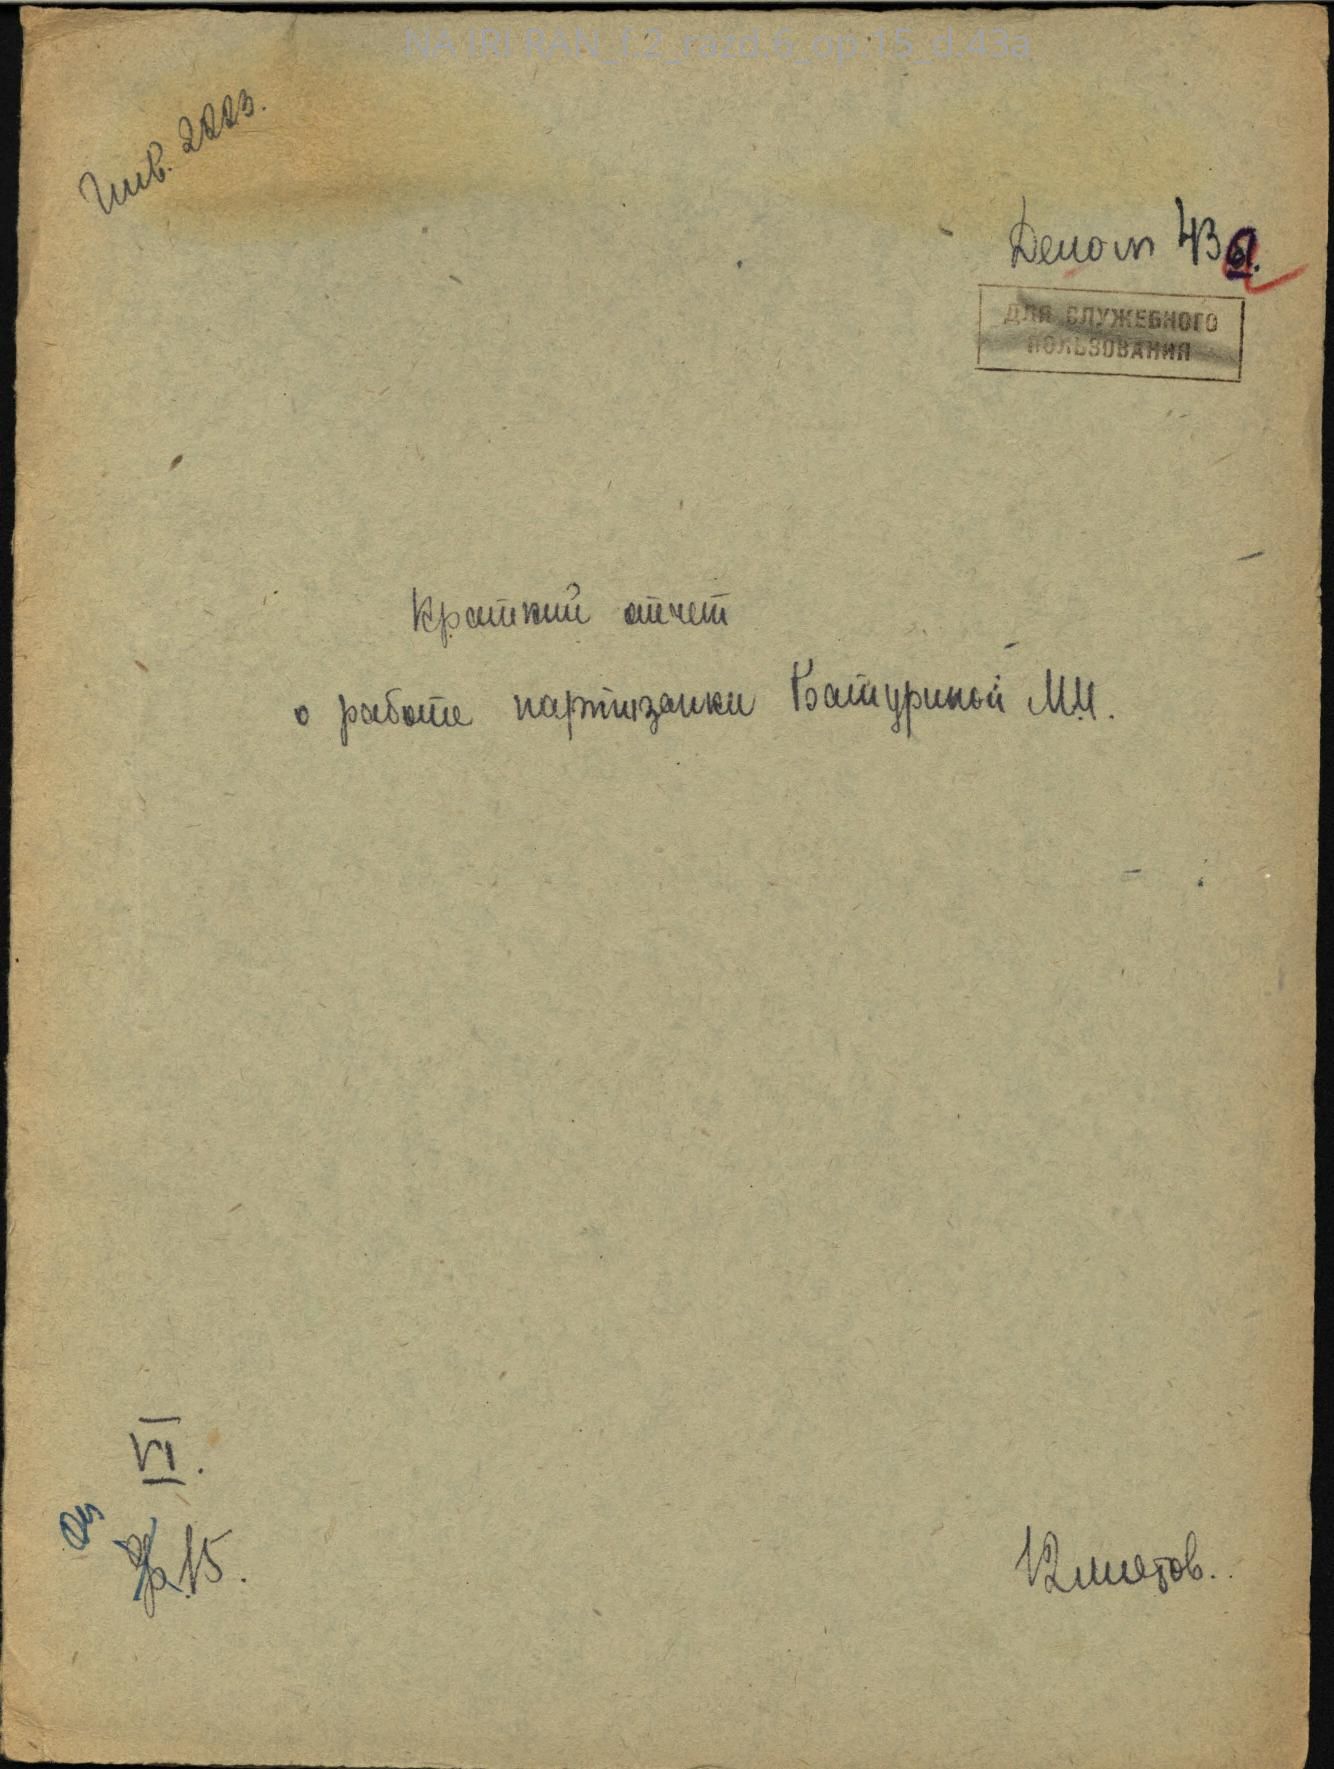 NA IRI RAN_f.2_razd.6_op.15_d.43a
Инв. 2223.
Дело № 43а.
ДЛЯ СЛУЖЕБНОГО
ПОЛЬЗОВАНИЯ
Краткий отчет
о работе партизанки Батуриной М.И.
VI.
15.
12 листов.